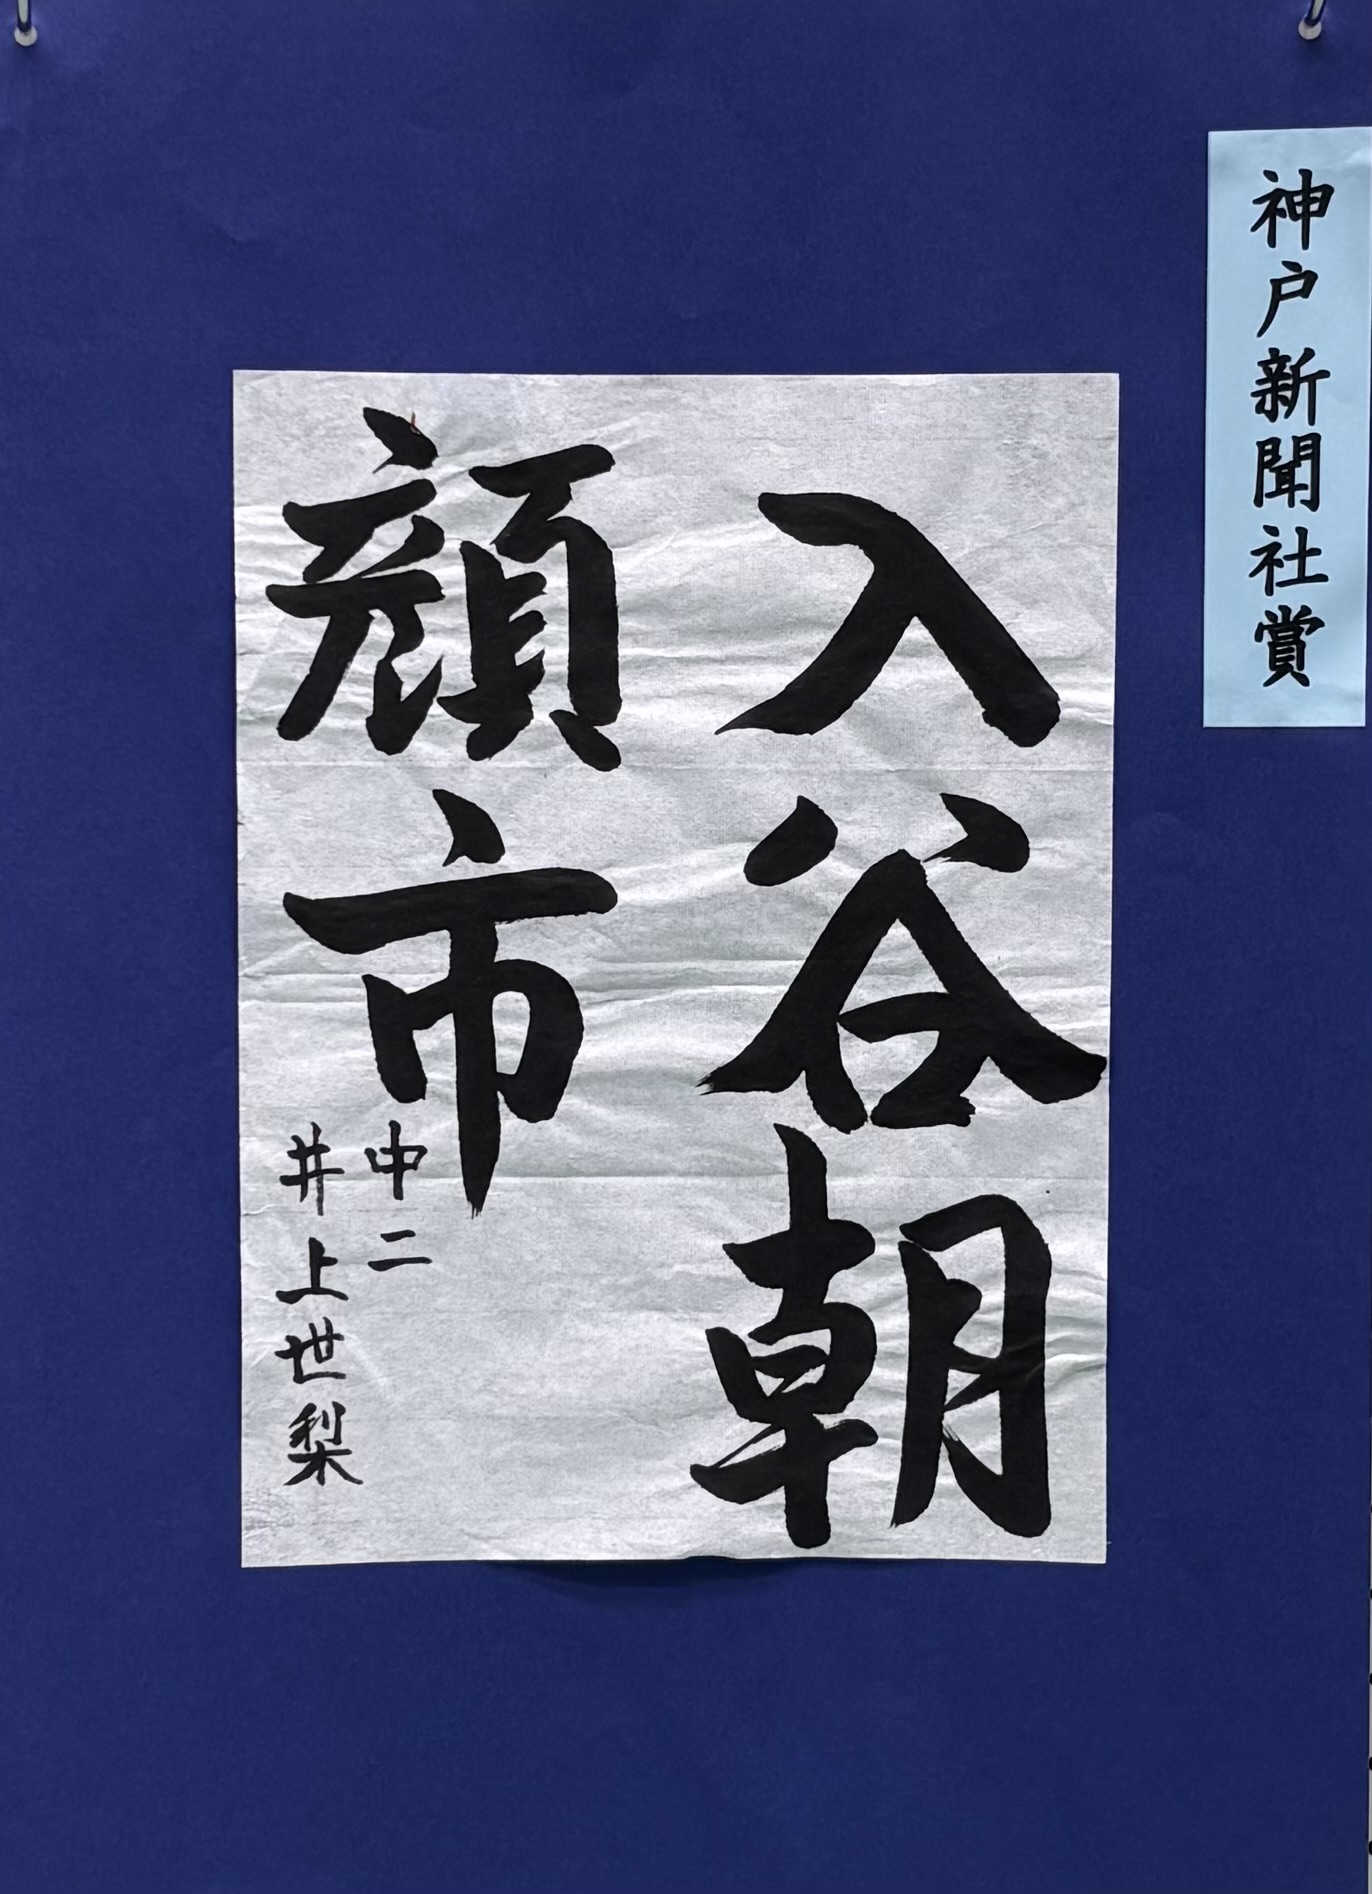 神戸新聞社賞
入谷朝
顔市
中二
井上世梨